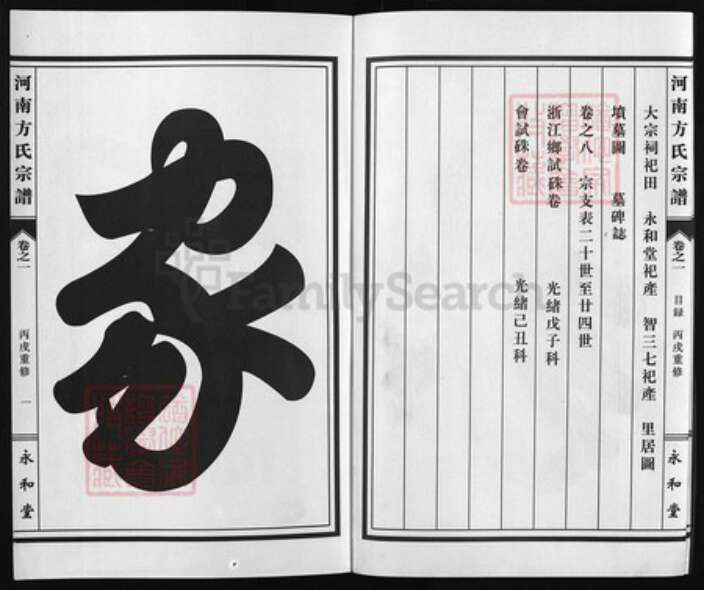 河南方氏宗譜
卷之一
目録
丙戌重修
永和堂
大宗祠祀田 永和堂祀產 智三七祀產 里居圖
墳墓圖 墓碑誌
卷之八 宗支表二十世至廿四世
浙江鄉試硃卷 光緒戊子科
會試硃卷 光緒己丑科
家
河南方氏宗譜
卷之一
丙戌重修
一
永和堂
FamilySearch